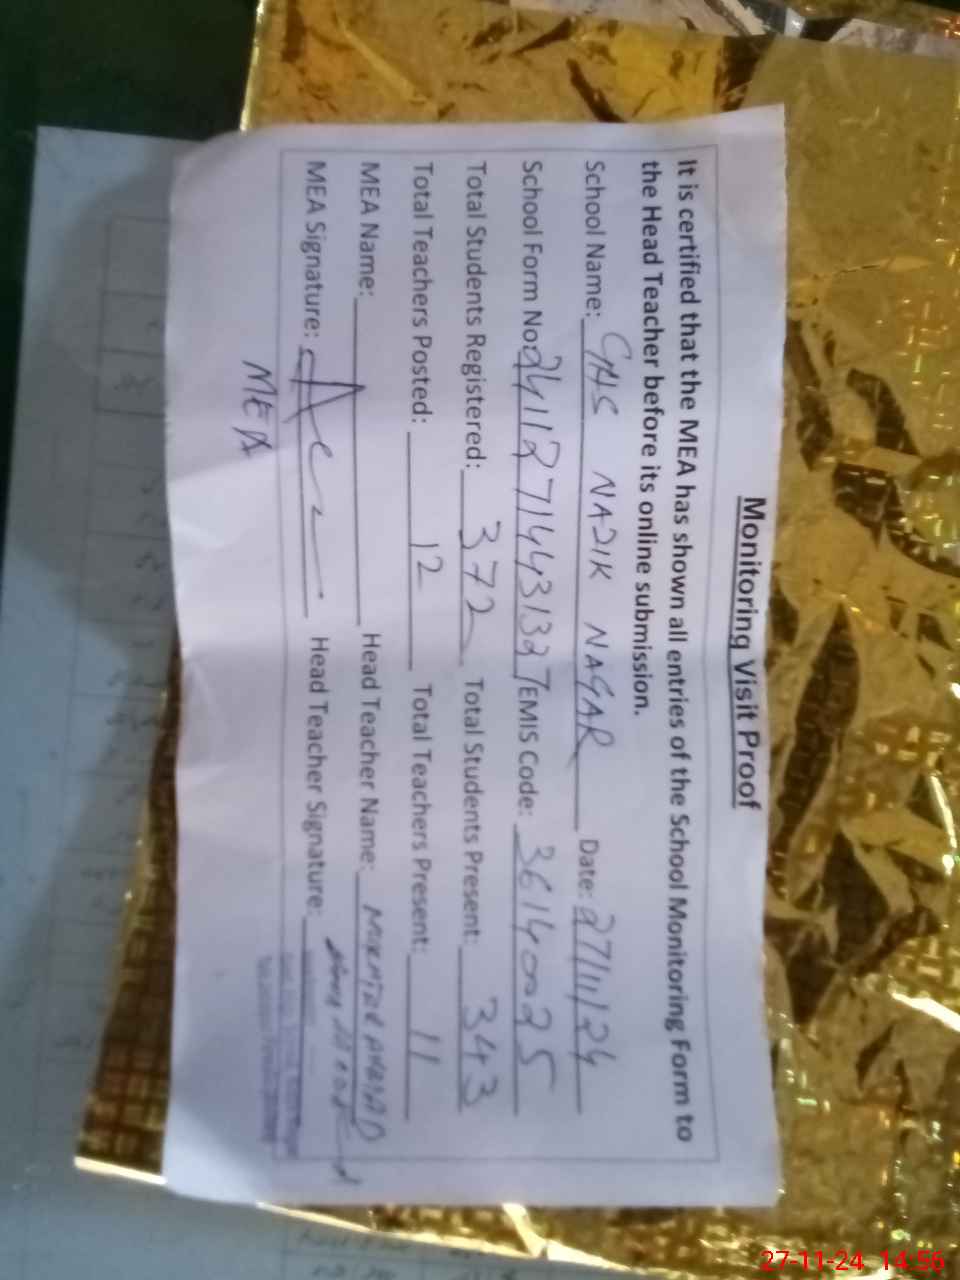 Monitoring Visit Proof
It is certified that the MEA has shown all entries of the School Monitoring Form to
the Head Teacher before its online submission.
School Name: GHS NAZIK NAGAR Date: 27/11/24
School Form No: 24112714431327 EMIS Code: 36140025
Total Students Registered: 372 Total Students Present: 343
Total Teachers Posted: 12 Total Teachers Present: 11
MEA Name: Head Teacher Name: AHMAD
MEA Signature: Head Teacher Signature:
MEA
27-11-24 14:56